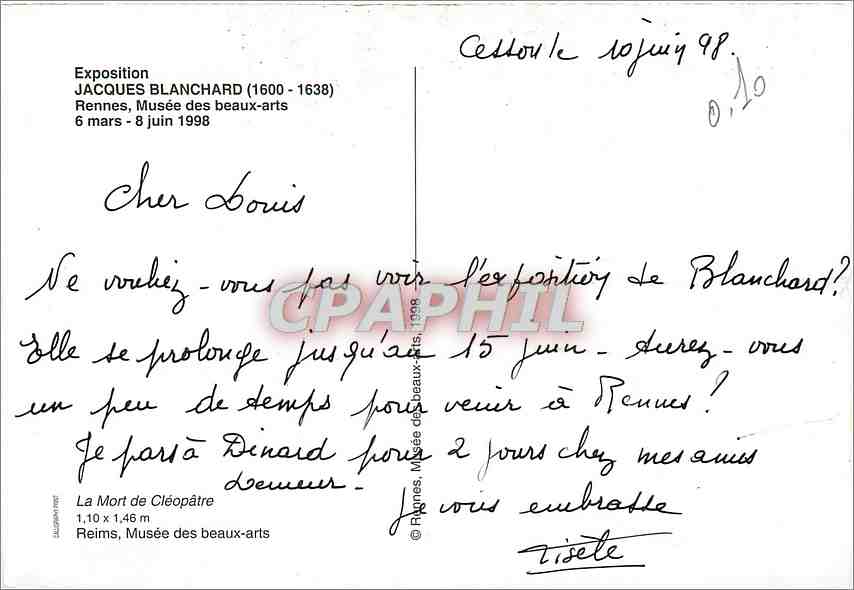 Cesson le 10 juin 98.
0,10
Exposition
JACQUES BLANCHARD (1600 - 1638)
Rennes, Musée des beaux-arts
6 mars - 8 juin 1998
Cher Louis
Ne vouliez-vous pas voir l'exposition de Blanchard?
Elle se prolonge jusqu'au 15 juin - Aurez-vous
un peu de temps pour venir à Rennes?
Je pars à Dinard pour 2 jours chez mes amis
Je vous embrasse
CPAPHIL
© Rennes, Musée des beaux-arts, 1998
La Mort de Cléopâtre
1,10 x 1,46 m
Reims, Musée des beaux-arts